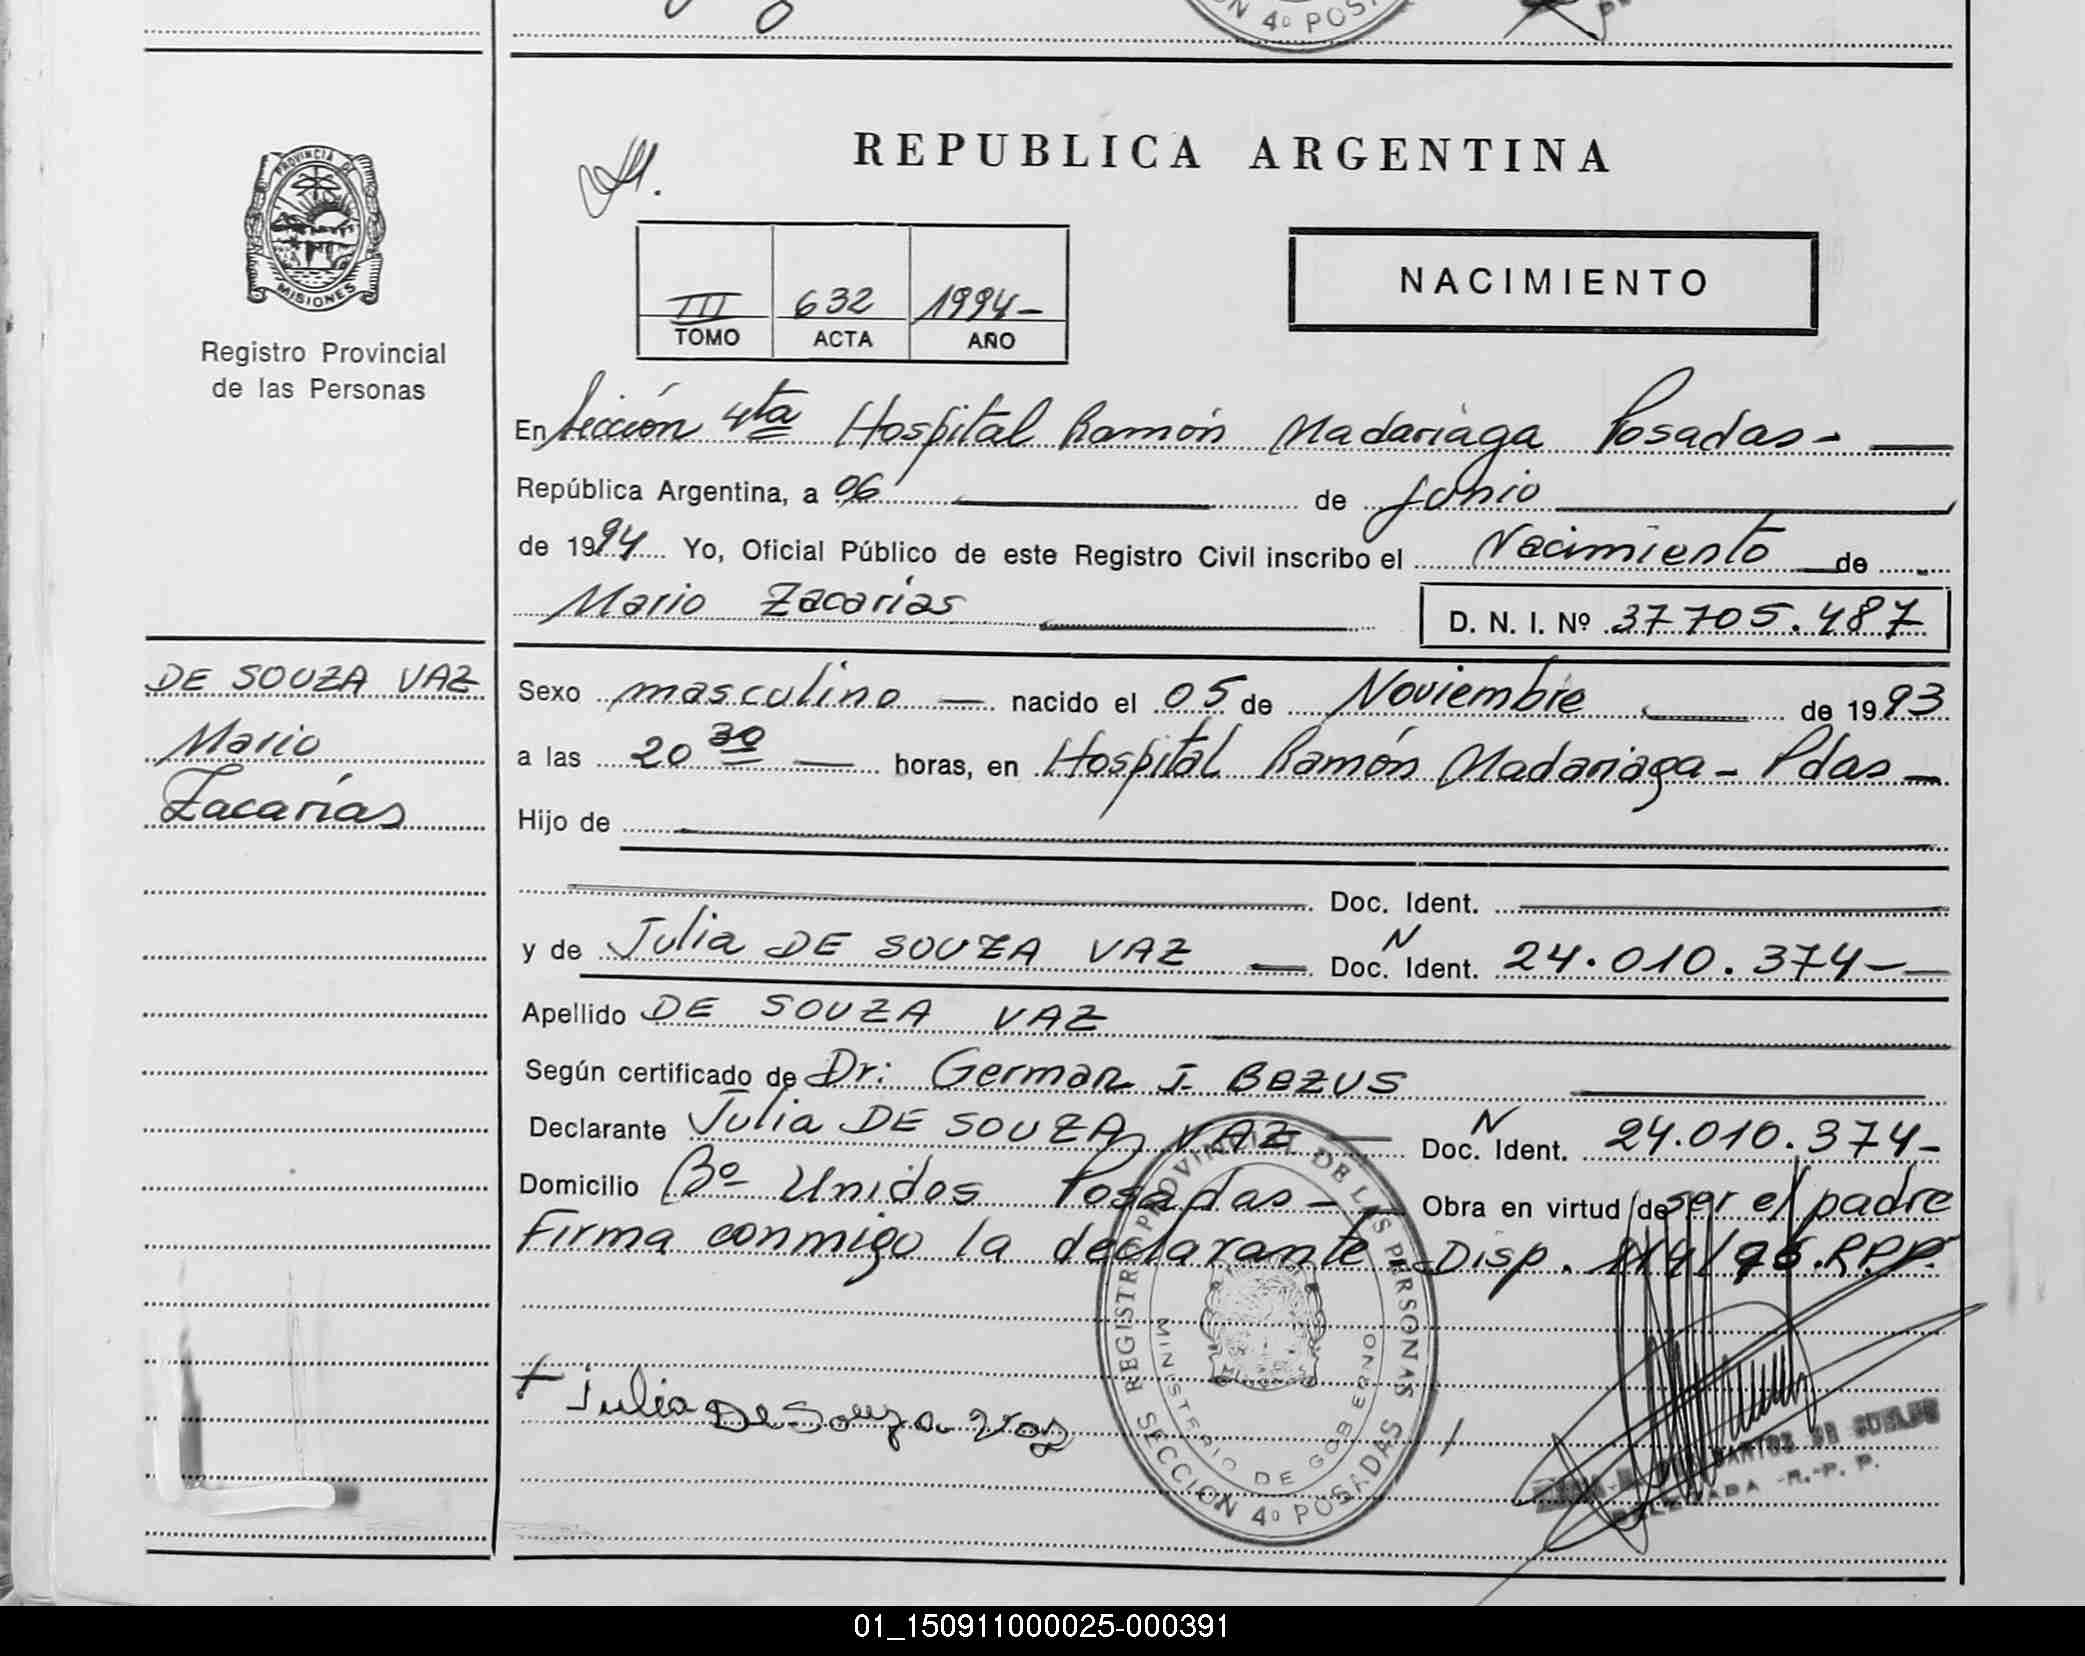 N 4º POS
REPUBLICA ARGENTINA
PROVINCIA DE
MISIONES
Registro Provincial
de las Personas
NACIMIENTO
III 632 1994-
TOMO ACTA AÑO
En Sección 4ta Hospital Ramón Madariaga Posadas -
República Argentina, a 06 de Junio
de 1994 Yo, Oficial Público de este Registro Civil inscribo el Nacimiento de
Mario Zacarías D. N. I. Nº 37705.487
DE SOUZA VAZ
Mario
Zacarías
Sexo masculino - nacido el 05 de Noviembre de 1993
a las 20 30 horas, en Hospital Ramón Madariaga - Pdas -
Hijo de
Doc. Ident.
y de Julia DE SOUZA VAZ - Doc. N Ident. 24.010.374-
Apellido DE SOUZA VAZ
Según certificado de Dr: German J. BEZUS
Declarante Julia DE SOUZA VAZ - Doc. N Ident. 24.010.374-
Domicilio Bº Unidos Posadas - Obra en virtud de ser el padre
Firma conmigo la declarante Disp. 114/96.R.P.P.
Julia De Souza Vaz
REGISTRO PROVINCIAL DE LAS PERSONAS
MINISTERIO DE GOBIERNO
SECCION 4º POSADAS
DELEGADA -R.-P. P.
01_150911000025-000391